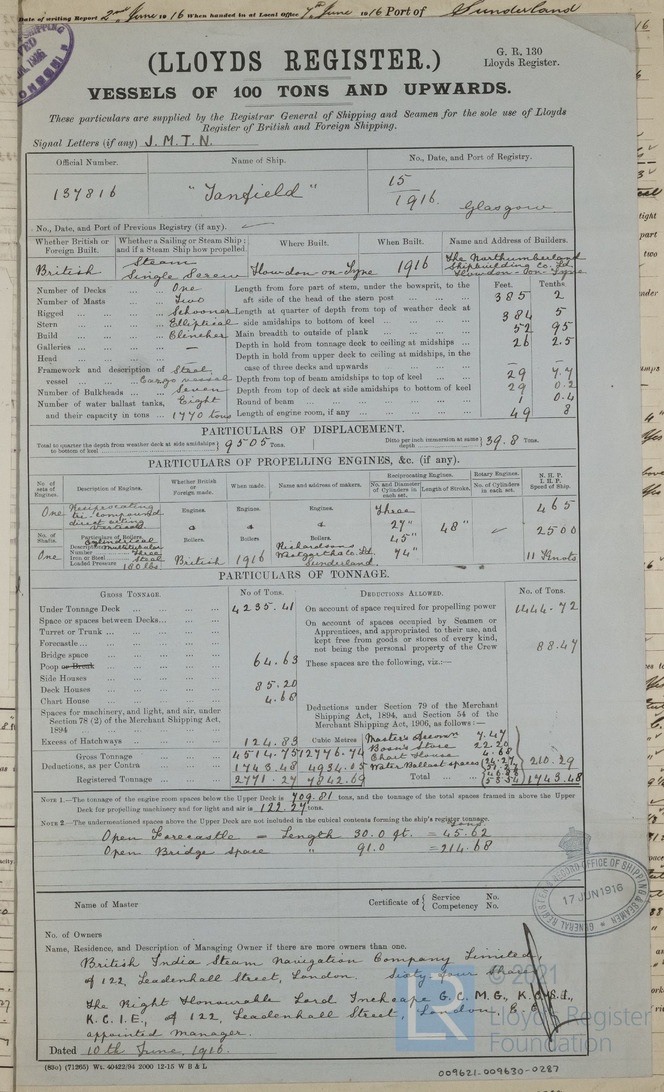 Date of writing Report 2nd June 1916 When handed in at Local Office 7th June 1916 Port of Sunderland
(LLOYDS REGISTER.)
G. R. 130
Lloyds Register.
VESSELS OF 100 TONS AND UPWARDS.
These particulars are supplied by the Registrar General of Shipping and Seamen for the sole use of Lloyds
Register of British and Foreign Shipping.
Signal Letters (if any) J. M. T. N.
Official Number. Name of Ship. No., Date, and Port of Registry.
137816 "Tanfield" 15/1916. Glasgow
No., Date, and Port of Previous Registry (if any).
Whether British or Foreign Built. Whether a Sailing or Steam Ship; and if a Steam Ship how propelled. Where Built. When Built. Name and Address of Builders.
British Steam Single Screw Howdon-on-Tyne 1916 The Northumberland Shipbuilding Co. Ld. Howdon-on-Tyne
Feet. Tenths.
Number of Decks One Length from fore part of stem, under the bowsprit, to the
Number of Masts Two aft side of the head of the stern post 385 2
Rigged Schooner Length at quarter of depth from top of weather deck at
Stern Elliptical side amidships to bottom of keel 384 5
Build Clincher Main breadth to outside of plank 52 95
Galleries — Depth in hold from tonnage deck to ceiling at midships 26 2.5
Head Depth in hold from upper deck to ceiling at midships, in the
Framework and description of Steel case of three decks and upwards — —
vessel Cargo vessel Depth from top of beam amidships to top of keel 29 7.7
Number of Bulkheads Seven Depth from top of deck at side amidships to bottom of keel 29 0.2
Number of water ballast tanks, Eight Round of beam 1 0.4
and their capacity in tons 1770 tons Length of engine room, if any 49 8
PARTICULARS OF DISPLACEMENT.
Total to quarter the depth from weather deck at side amidships to bottom of keel 9505 Tons. Ditto per inch immersion at same depth 39.8 Tons.
PARTICULARS OF PROPELLING ENGINES, &c. (if any).
No. of sets of Engines. Description of Engines. Whether British or Foreign made. When made. Name and address of makers. Reciprocating Engines. No. and Diameter of Cylinders in each set. Length of Stroke. Rotary Engines. No. of Cylinders in each set. N. H. P. I. H. P. Speed of Ship.
One Reciprocating tri-compound direct acting vertical Engines. Engines. Engines. Three 465
No. of Shafts. Particulars of Boilers. Boilers. Boilers. Boilers. 27" 48" 2500
Description Cylindrical Multitubular 45"
Number Three
One Iron or Steel Steel British 1916 Richardsons Westgarth & Co. Ld. Sunderland 74" 11 Knots
Loaded Pressure 180 lbs
PARTICULARS OF TONNAGE.
GROSS TONNAGE. No of Tons. DEDUCTIONS ALLOWED. No. of Tons.
Under Tonnage Deck 4235.41 On account of space required for propelling power 1444.72
Space or spaces between Decks On account of spaces occupied by Seamen or
Turret or Trunk Apprentices, and appropriated to their use, and
Forecastle kept free from goods or stores of every kind,
Bridge space not being personal property of the Crew 88.47
Poop or Break 64.63 These spaces are the following, viz.:—
Side Houses
Deck Houses 85.20
Chart House 4.68
Spaces for machinery, and light, and air, under Deductions under Section 79 of the Merchant
Section 78 (2) of the Merchant Shipping Act, Shipping Act, 1894, and Section 54 of the
1894 Merchant Shipping Act, 1906, as follows:—
Excess of Hatchways 124.83 Cubic Metres Master's Accomn 7.47
Bosn's Store 22.20
Gross Tonnage 4514.75 12776.74 Chart House 4.68
Deductions, as per Contra 1743.48 4934.15 Water Ballast spaces 210.29
Registered Tonnage 2771.27 7842.69 Total 1743.48
NOTE 1.—The tonnage of the engine room spaces below the Upper Deck is 709.81 tons, and the tonnage of the total spaces framed in above the Upper
Deck for propelling machinery and for light and air is 122.27 tons.
NOTE 2.—The undermentioned spaces above the Upper Deck are not included in the cubical contents forming the ship's register tonnage.
Tons
Open Forecastle = Length 30.0 ft. = 45.62
Open Bridge Space " 91.0 = 214.68
Name of Master Certificate of Service No. Competency No.
RECORD OFFICE OF SHIPPING & SEAMEN
17 JUN 1916
REGISTRAR GENERAL
No. of Owners
Name, Residence, and Description of Managing Owner if there are more owners than one.
British India Steam Navigation Company Limited,
of 122, Leadenhall Street, London. Sixty four Shares
The Right Honourable Lord Inchcape G. C. M. G., K. C. S. I.,
K. C. I. E., of 122, Leadenhall Street, London, E. C.
appointed manager.
Dated 10th June, 1916.
© 2021
LR Lloyd's Register
Foundation
(830) (71265) Wt. 40422/94 2000 12-15 W B & L
009621-009630-0287